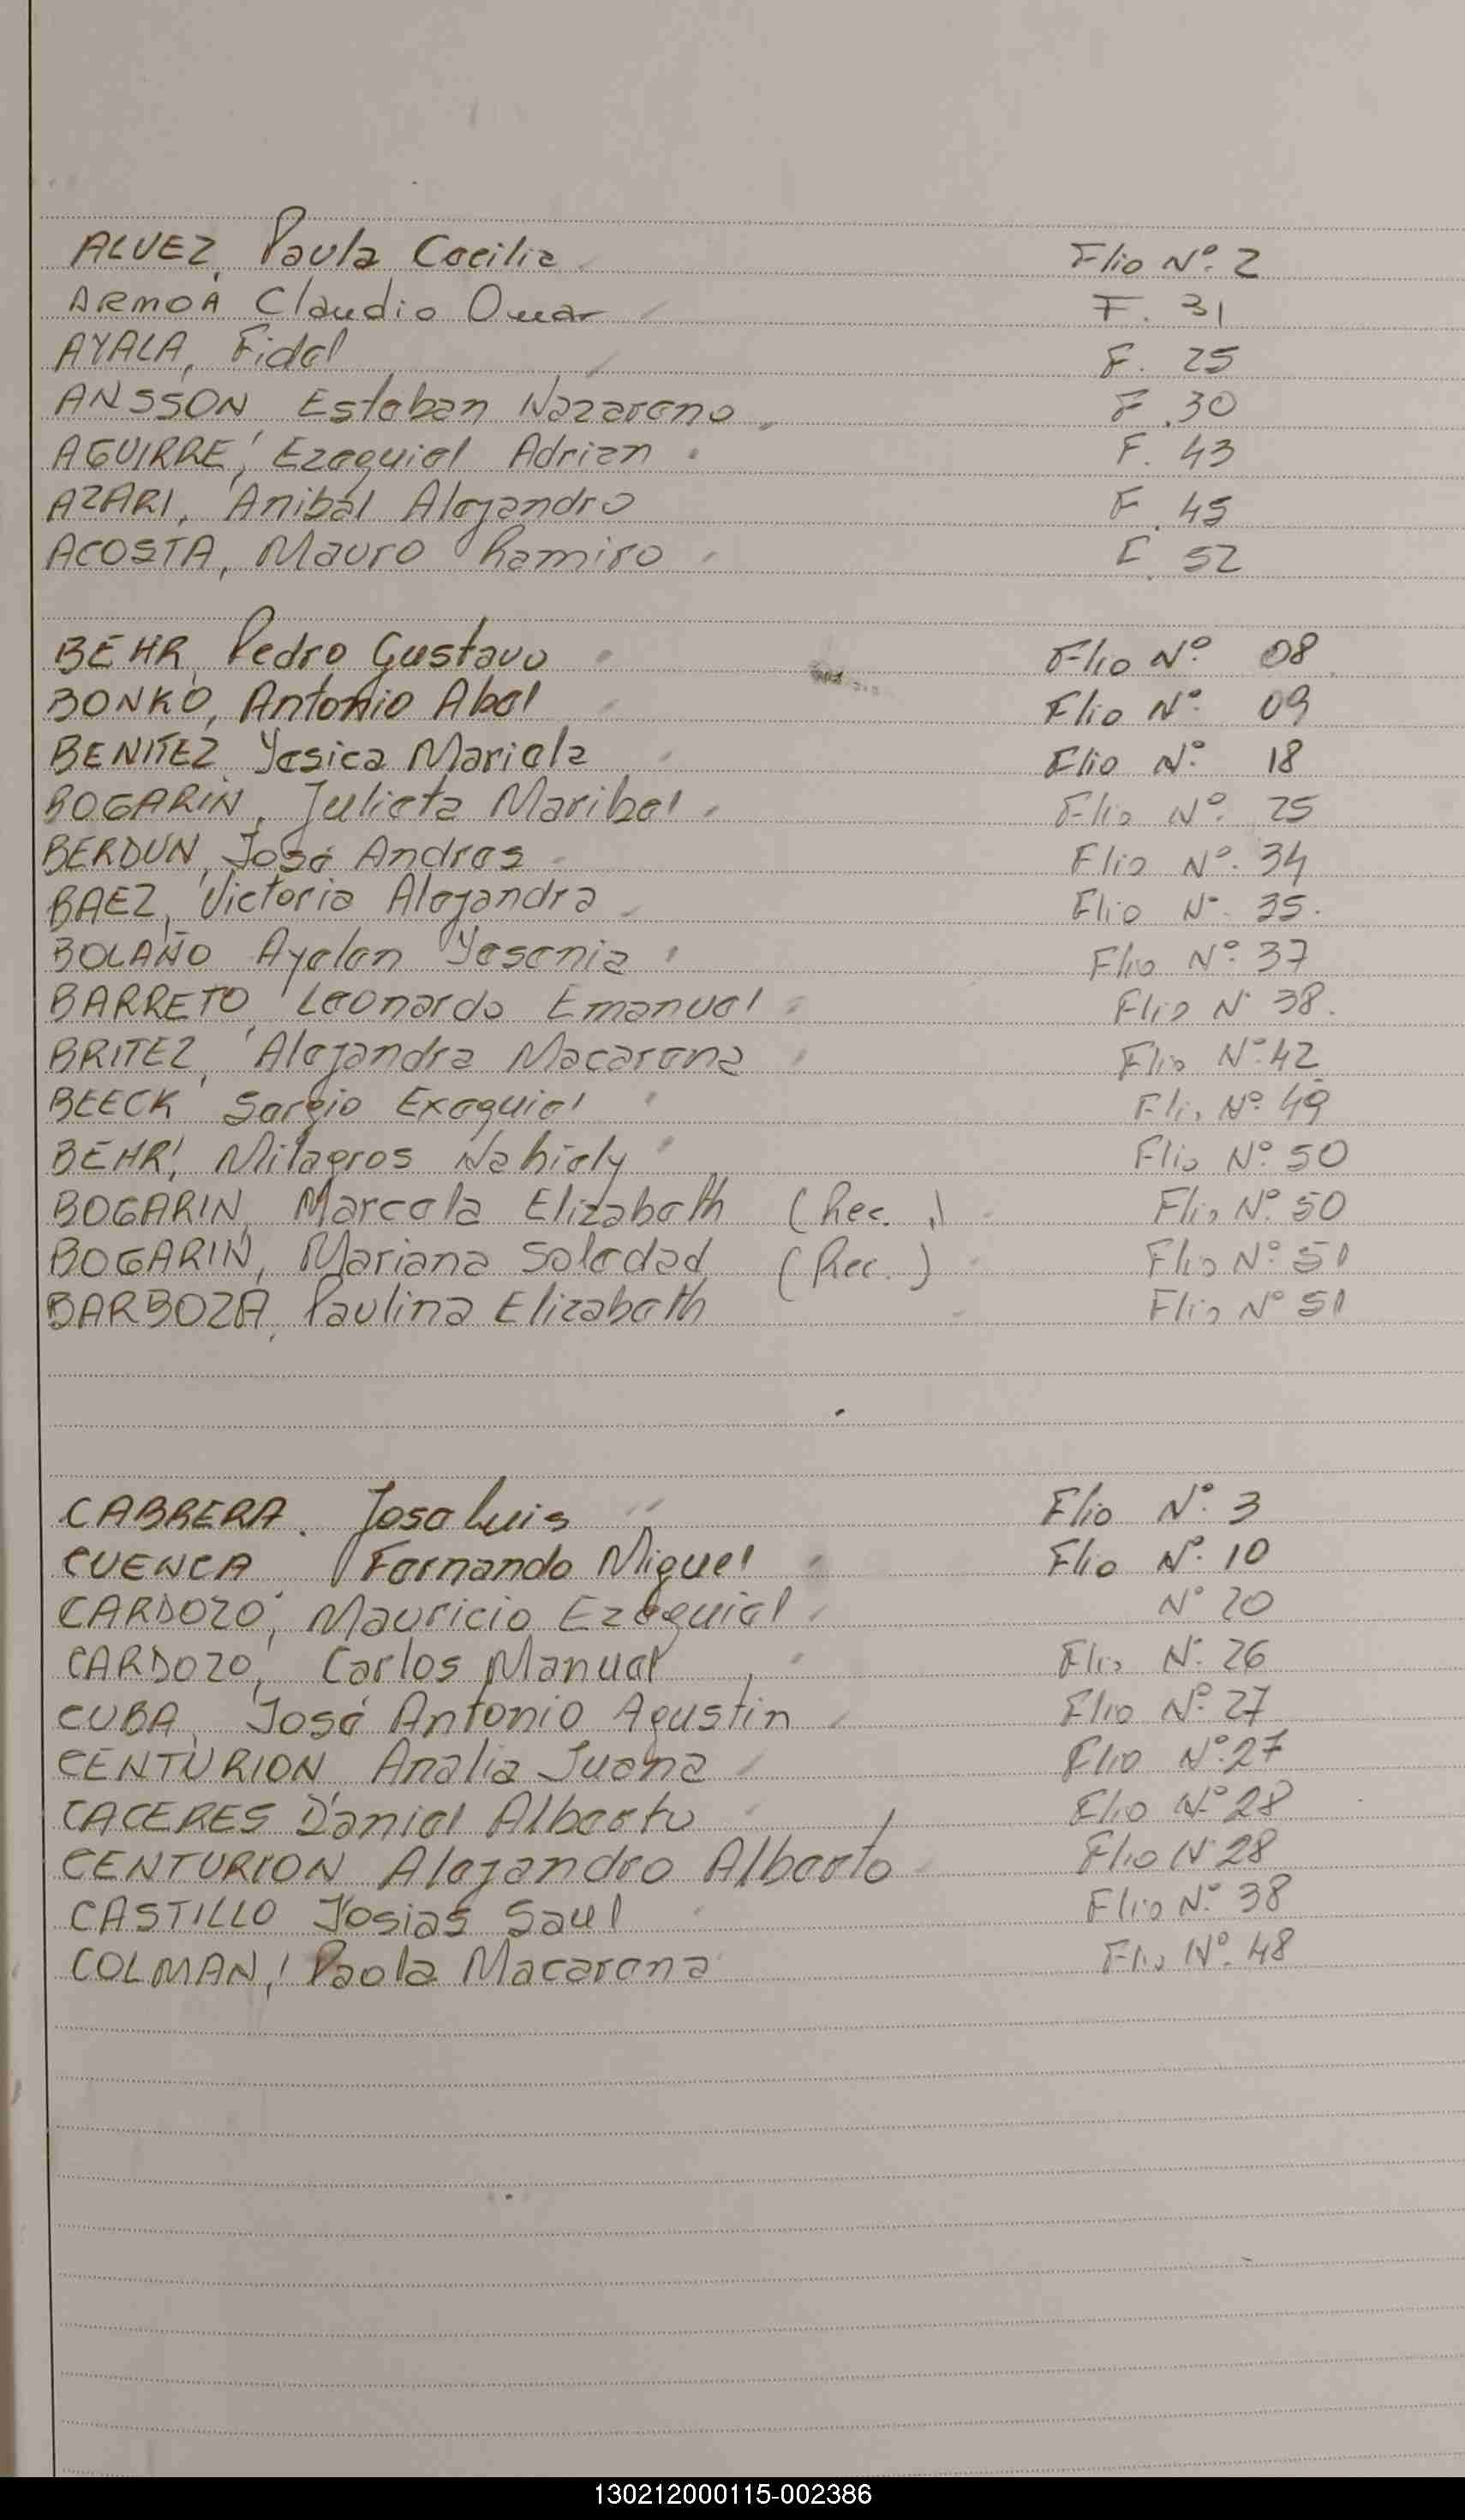 ALVEZ, Paula Cecilia Flio Nº. 2
ARMOA Claudio Omar F. 31
AYALA, Fidel F. 25
ANSSON Esteban Nazareno F. 30
AGUIRRE, Ezequiel Adrian F. 43
AZARI, Anibal Alejandro F. 45
ACOSTA, Mauro Ramiro F. 52
BEHR, Pedro Gustavo Flio Nº 08
BONKO, Antonio Abel Flio Nº 09
BENITEZ, Yesica Mariela Flio Nº 18
BOGARIN, Julieta Maribel Flio Nº 25
BERDUN, José Andres Flio Nº. 34
BAEZ, Victoria Alejandra Flio Nº 35.
BOLAÑO Ayelen Yesenia Flio Nº 37
BARRETO, Leonardo Emanuel Flio Nº 38.
BRITEZ, Alejandra Macarena Flio Nº 42
BEECK Sergio Exequiel Flio Nº 49
BEHR, Milagros Nahiely Flio Nº 50
BOGARIN, Marcela Elizabeth (Rec.) Flio Nº 50
BOGARIN, Mariana Soledad (Rec.) Flio Nº 51
BARBOZA, Paulina Elizabeth Flio Nº 51
CABRERA. Jose Luis Flio Nº. 3
CUENCA Fernando Miguel Flio Nº. 10
CARDOZO, Mauricio Ezequiel Nº 20
CARDOZO, Carlos Manuel Flio Nº 26
CUBA, José Antonio Agustin Flio Nº 27
CENTURION Analia Juana Flio Nº 27
CACERES Daniel Alberto Flio Nº 28
CENTURION Alejandro Alberto Flio Nº 28
CASTILLO Josias Saul Flio Nº 38
COLMAN, Paola Macarena Flio Nº. 48
130212000115-002386